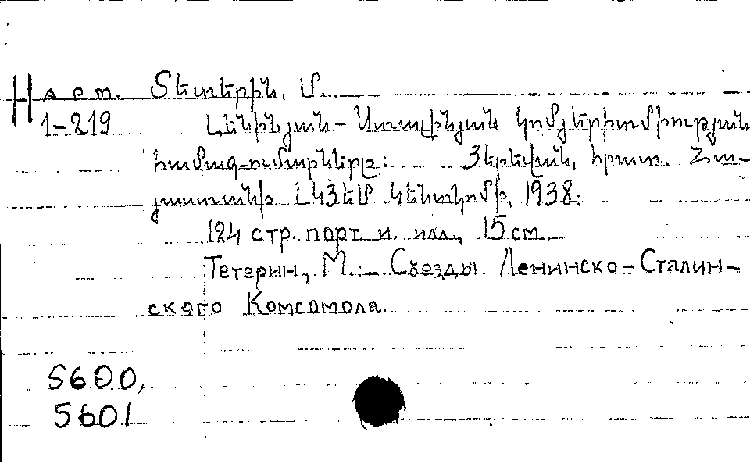 Н арт. Տետերին, Մ.
1-219 Լենինյան-Ստալինյան կոմյերիտմիության
համագումարները: Յերեվան, հրատ. Հա-
յաստանի ԼԿՅԵՄ Կենտկոմի, 1938.
124 стр. порт. и илл., 15 см
Тетерин, М.- Съезды Ленинско-Сталин-
ского Комсомола.
5600,
5601